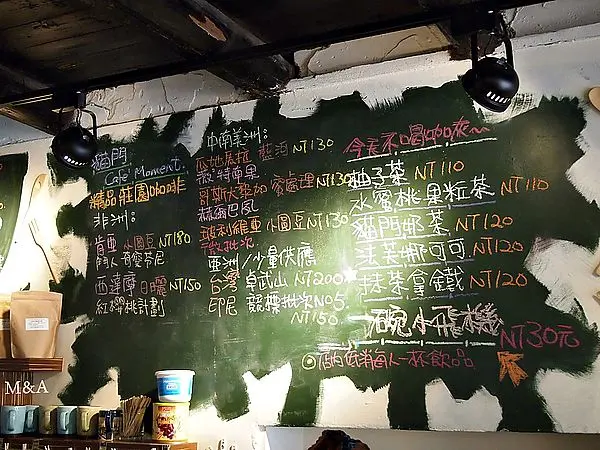 貓門
Café Moment.
精品莊園咖啡
非洲：
肯亞 小圓豆 NT180
西達摩 日曬 NT150
紅櫻桃計劃
中南美洲：
瓜地馬拉 藍河 NT130
薇薇特南果
哥斯大黎加 蜜處理 NT130
赫爾巴夏
玻利維亞 小圓豆 NT130
微批次
亞洲/少量供應
台灣 卓武山 NT200
印尼 競標批次No5.
NT150
今天不喝咖啡~
柚子茶 NT110
水蜜桃果粒茶 NT110
貓門奶茶 NT120
法芙娜可可 NT120
抹茶拿鐵 NT120
一碗小飛機 NT30元
低消每人一杯飲品
M&A